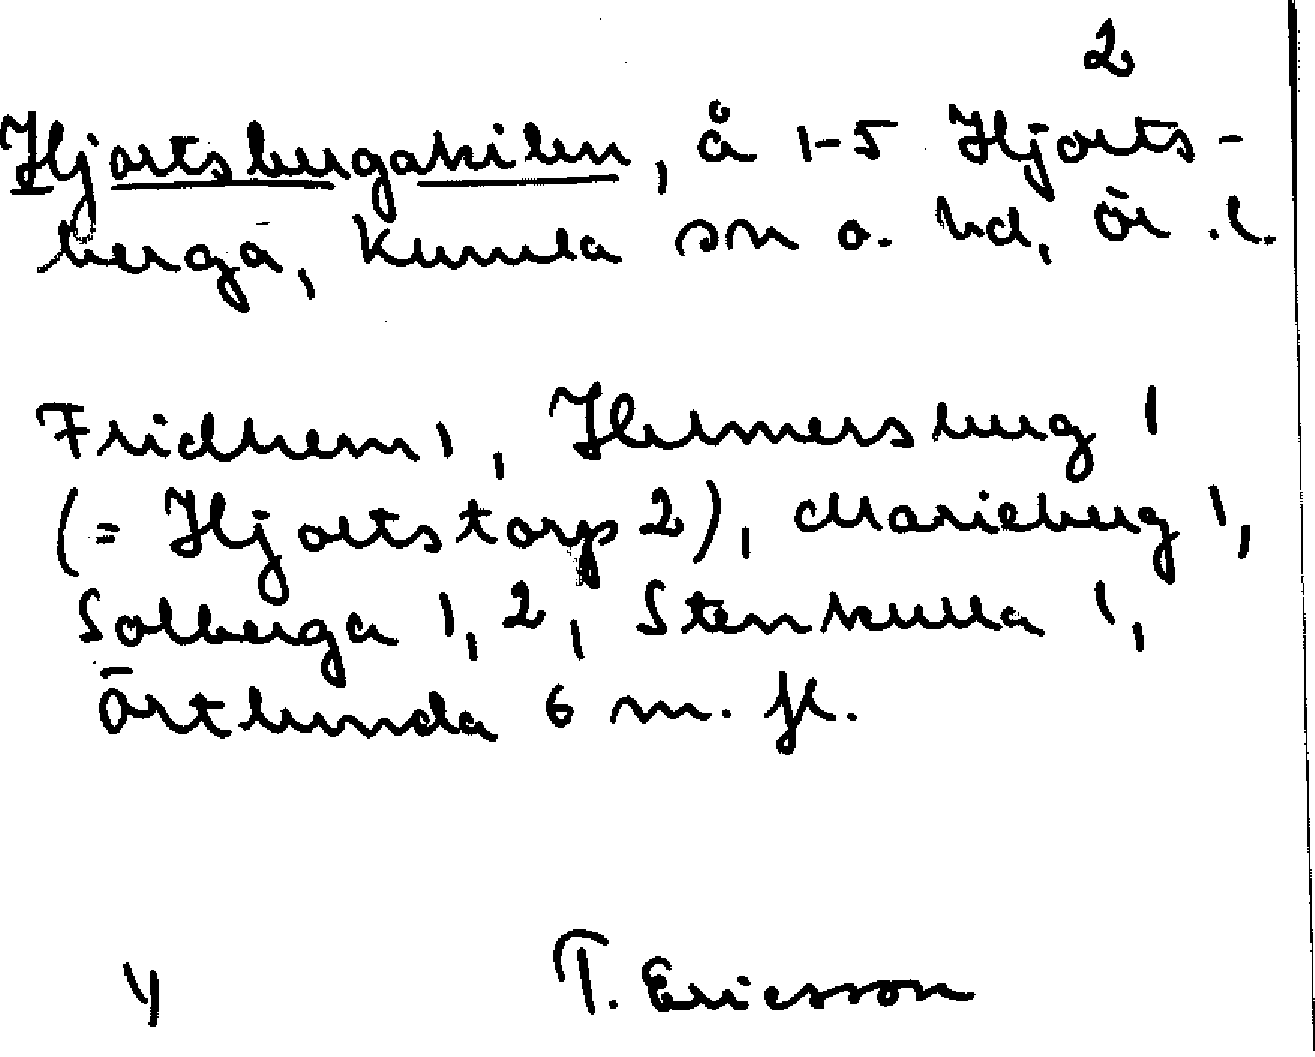 2
Hjortsbergakilen, å 1-5 Hjorts-
berga, Kumla sn o. hd, Ör. l.
Fridhem 1, Helmersberg 1
(= Hjortstorp 2), Marieberg 1,
Solberga 1, 2, Stenkulla 1,
Örtlunda 6 m. fl.
T. Ericsson